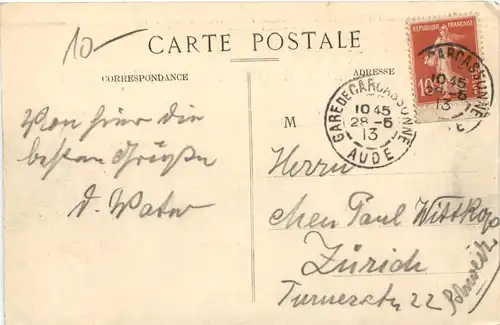 10-
CARTE POSTALE
CORRESPONDANCE
ADRESSE
REPUBLIQUE FRANÇAISE
10
CARCASSONNE
10 45
28-5
13
GARE DE CARCASSONNE
10 45
28-5
13
AUDE
M
Von hier die
besten Grüße
d. Vater
Herrn
Paul Wittkop
Zürich
Turnerstr 22
Schweiz